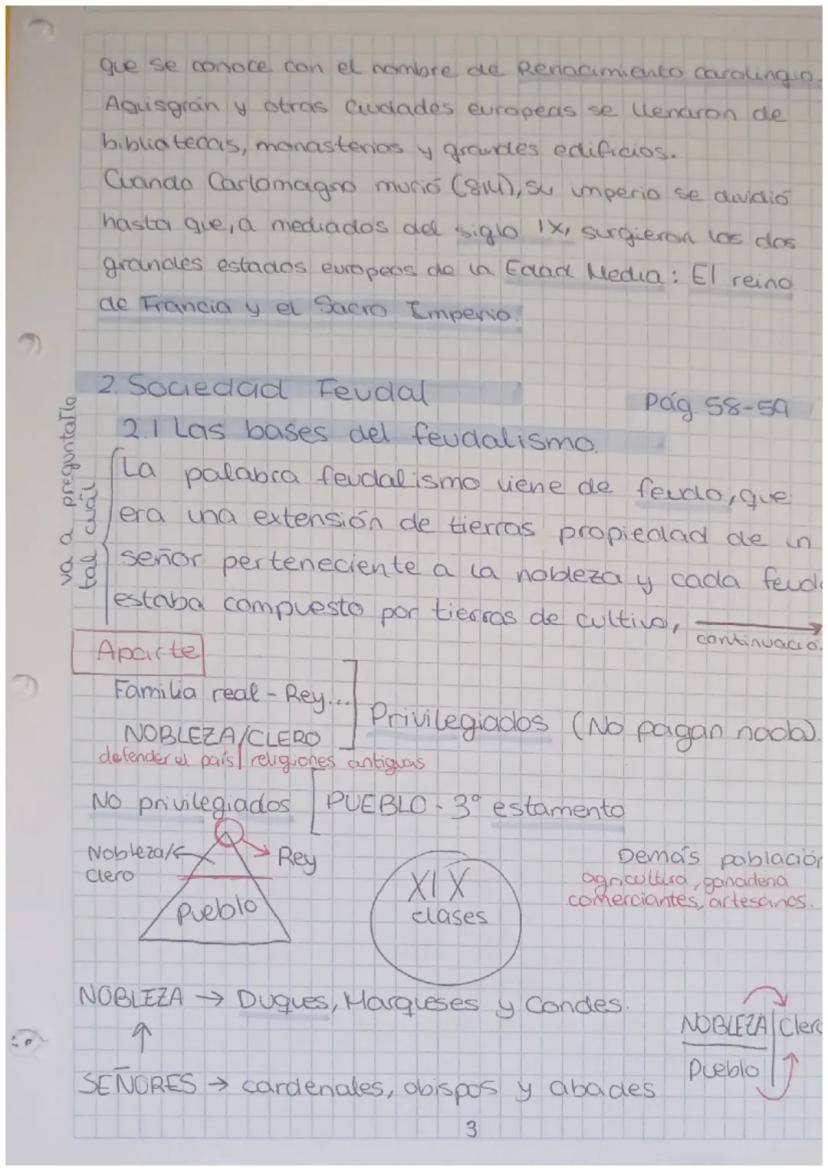 que se conoce con el nombre de Renacimiento carolingio.
Aquisgrán y otras ciudades europeas se llenaron de
bibliotecas, monasterios y grandes edificios.
Cuando Carlomagno murió (814), su imperio se dividió
hasta que, a mediados del siglo IX, surgieron los dos
grandes estados europeos de la Edad Media: El reino
de Francia y el Sacro Imperio.
2. Sociedad Feudal
Pág 58-59
2.1 Las bases del feudalismo.
va a preguntarlo
tal cual
La palabra feudalismo viene de feudo, que
era una extensión de tierras propiedad de un
señor perteneciente a la nobleza y cada feud
estaba compuesto por tierras de cultivo,
continuació
Aparte
Familia real - Rey...
NOBLEZA/CLERO
Privilegiados (No pagan nada).
defender el país | religiones antiguas
No privilegiados
PUEBLO - 3º estamento
Nobleza/
clero
Rey
Pueblo
XIX
clases
Demás población
agricultura, ganadería
comerciantes, artesanos.
NOBLEZA → Duques, Marqueses y Condes.
↑
SEÑORES → cardenales, obispos y abades
NOBLEZA | Cler
Pueblo
3